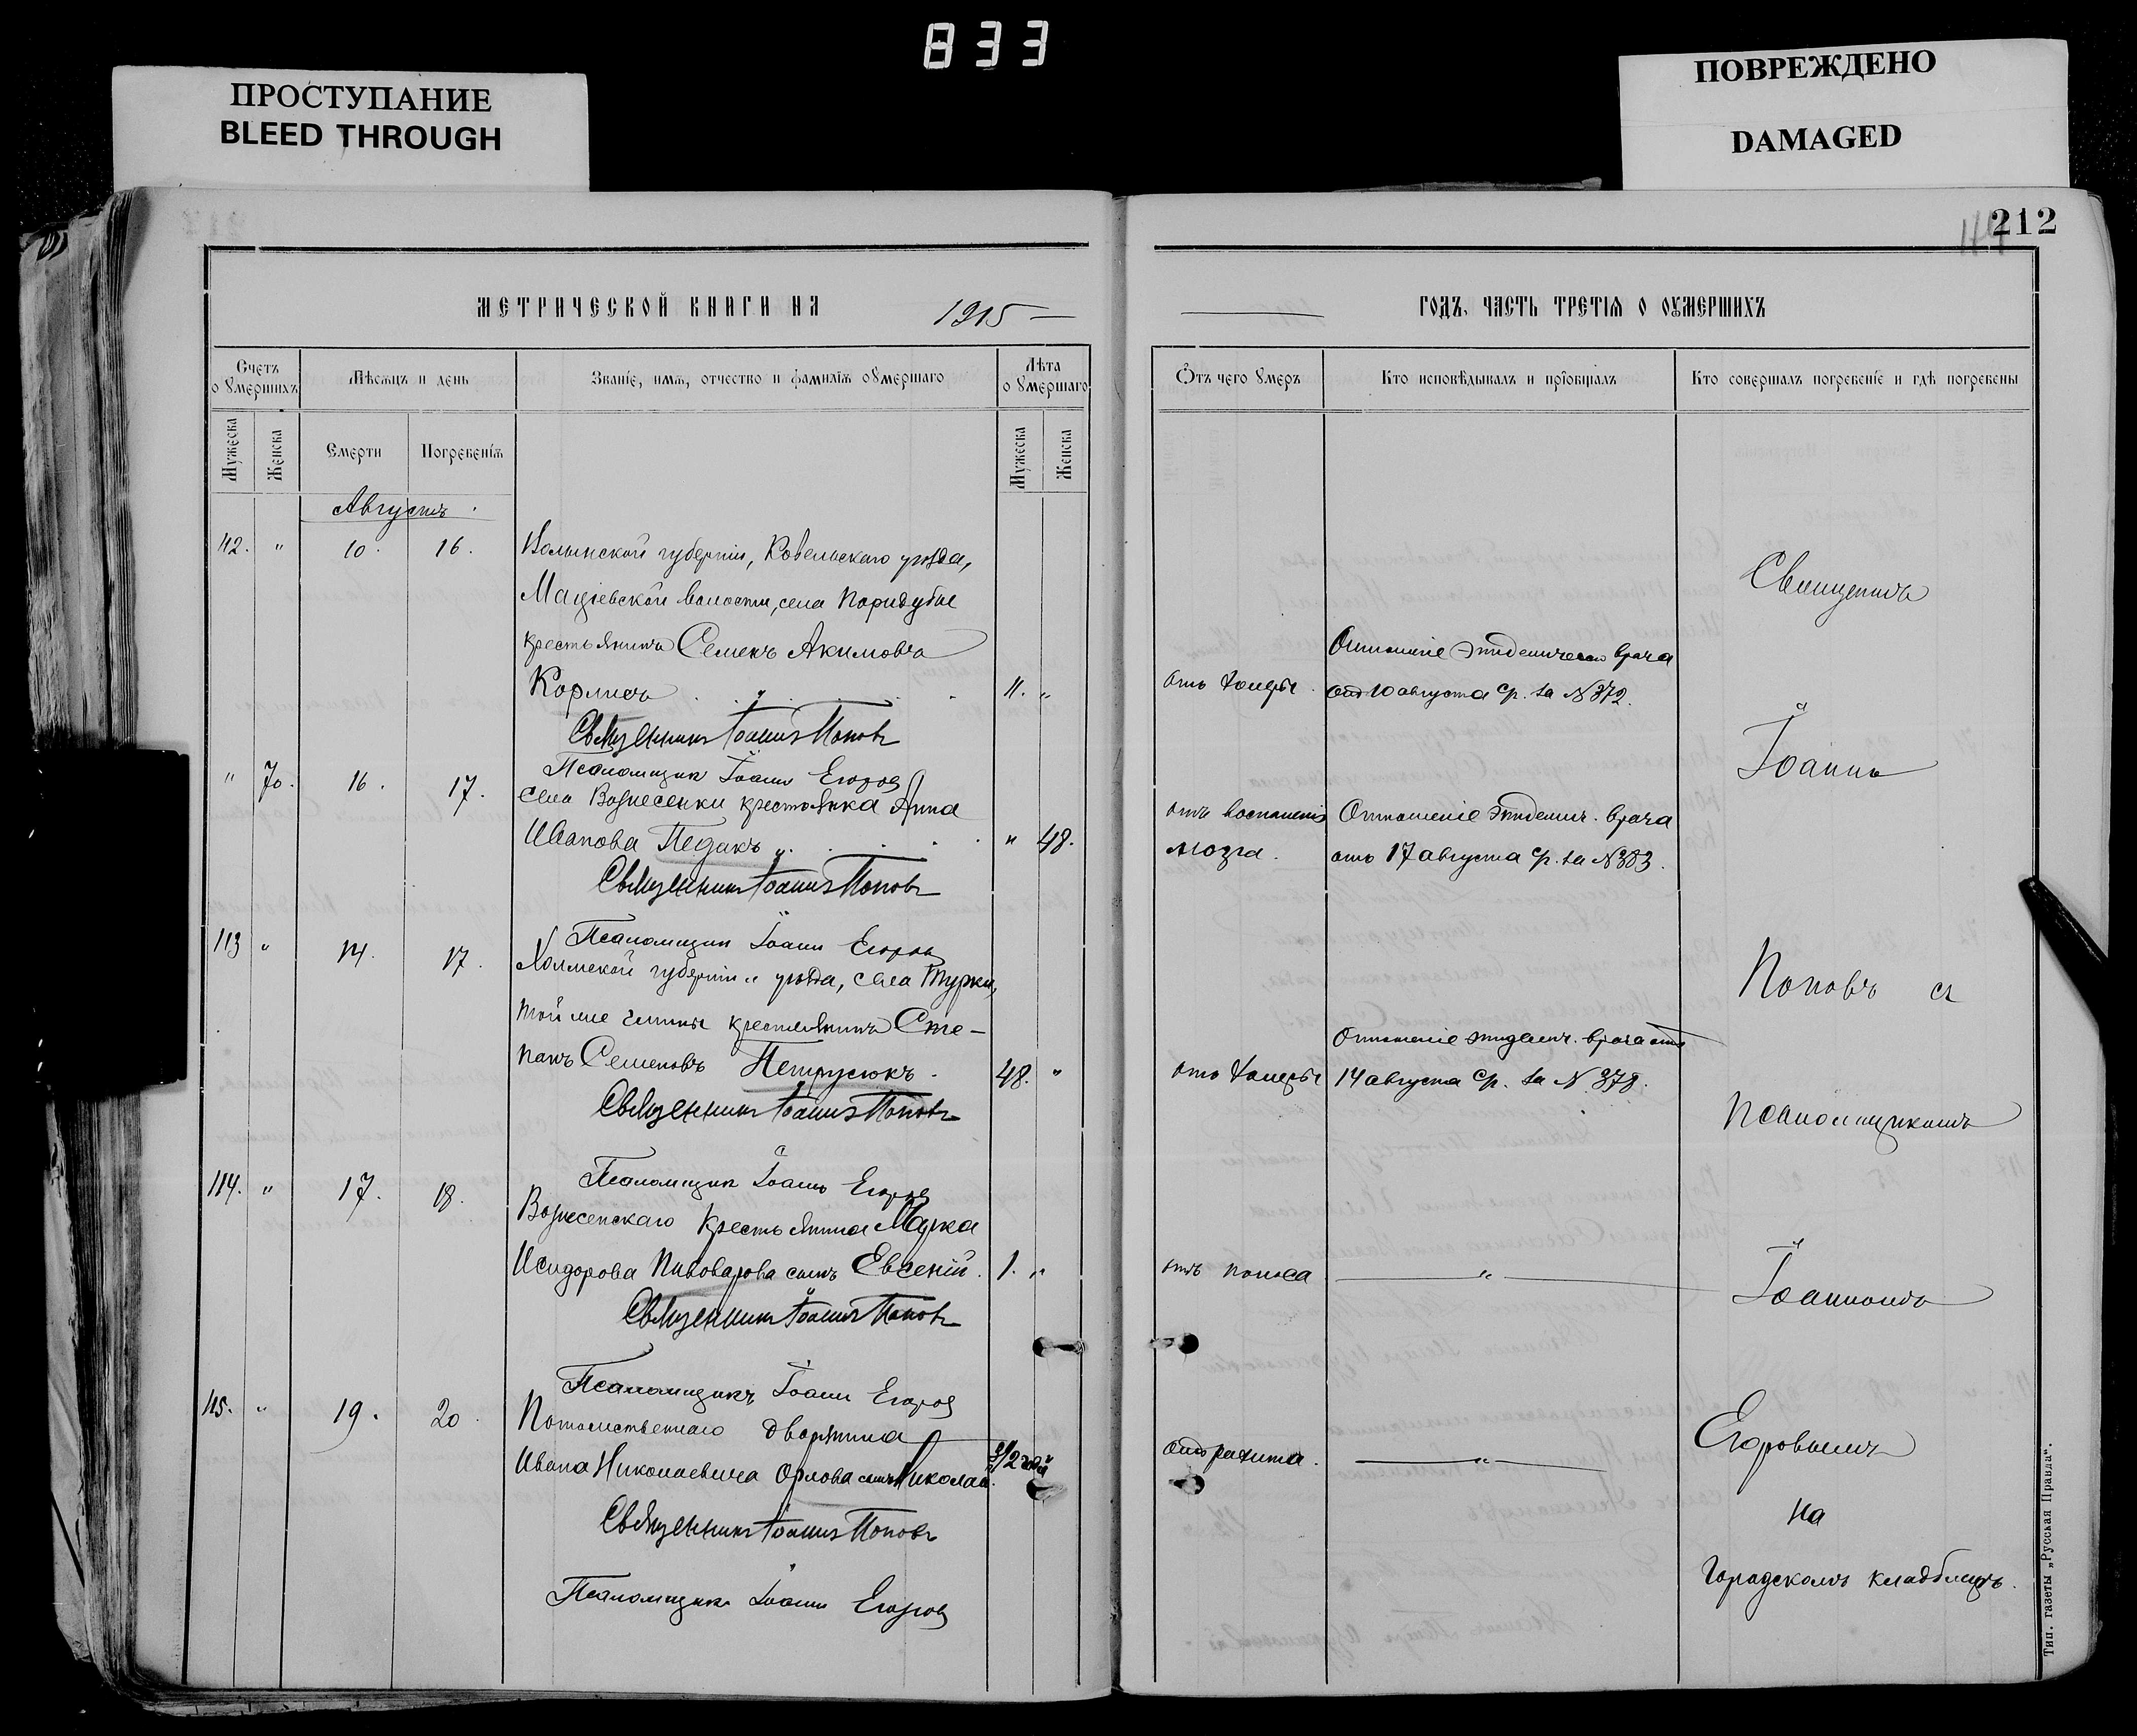 833
ПРОСТУПАНИЕ
BLEED THROUGH
ПОВРЕЖДЕНО
DAMAGED
212
МЕТРИЧЕСКОЙ КНИГИ НА 1915
ГОДЪ, ЧАСТЬ ТРЕТІѦ О ОУМЕРШИХЪ
Счетъ оумершихъ
Мѣсѧцъ и день
Званіе, имѧ, отчество и фамиліѧ оумершаго
Лѣта оумершаго
Отъ чего умеръ
Кто исповѣдывалъ и пріобщалъ
Кто совершалъ погребеніе и гдѣ погребены
Мужеска
Женска
Смерти
Погребеніѧ
Мужеска
Женска
Августъ
112. " 10. 16. Волынской губерніи, Ковельскаго уѣзда,
Маціевской волости, села Паридубье
крестьянинъ Семенъ Акимовъ
Корлюсь " 11. "
отъ холеры.
Отношеніе эпидемическаго врача
отъ 10 августа с/г. за № 372.
Священникъ Іоаннъ Поповъ
Псаломщикъ Іоаннъ Егоровъ
" 70. 16. 17. села Вознесенки крестьянка Анна
Иванова Педакъ " " 48.
отъ воспаленія
мозга.
Отношеніе эпидемич. врача
отъ 17 августа с/г. за № 383.
Священникъ Іоаннъ Поповъ
Псаломщикъ Іоаннъ Егоровъ
113 " 14. 17. Холмской губерніи и уѣзда, села Турки,
той же гмины крестьянинъ Сте-
панъ Семеновъ Петрусюкъ. 48. "
отъ холеры
Отношеніе эпидемич. врача отъ
14 августа с/г. за № 378.
Священникъ Іоаннъ Поповъ
Псаломщикъ Іоаннъ Егоровъ
114. " 17. 18. Вознесенскаго крестьянина Марка
Исидорова Пивоварова сынъ Евсеній. 1. "
отъ поноса "
Священникъ Іоаннъ Поповъ
Псаломщикъ Іоаннъ Егоровъ
115. " 19. 20. Потомственнаго дворянина
Ивана Николаевича Орлова сынъ Николай.
отъ рахита. "
Священникъ Іоаннъ Поповъ
Псаломщикъ Іоаннъ Егоровъ
Священникъ
Іоаннъ
Поповъ съ
псаломщикомъ
Іоанномъ
Егоровымъ
на
городскомъ кладбищѣ.
Тип. газеты „Русская Правда“.